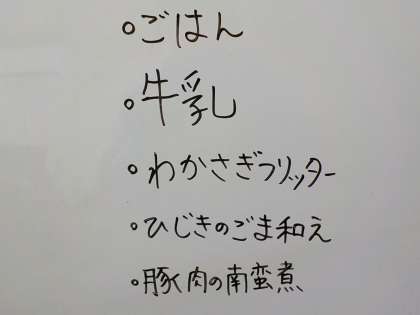 ・ごはん
・牛乳
・わかさぎフリッター
・ひじきのごま和え
・豚肉の南蛮煮